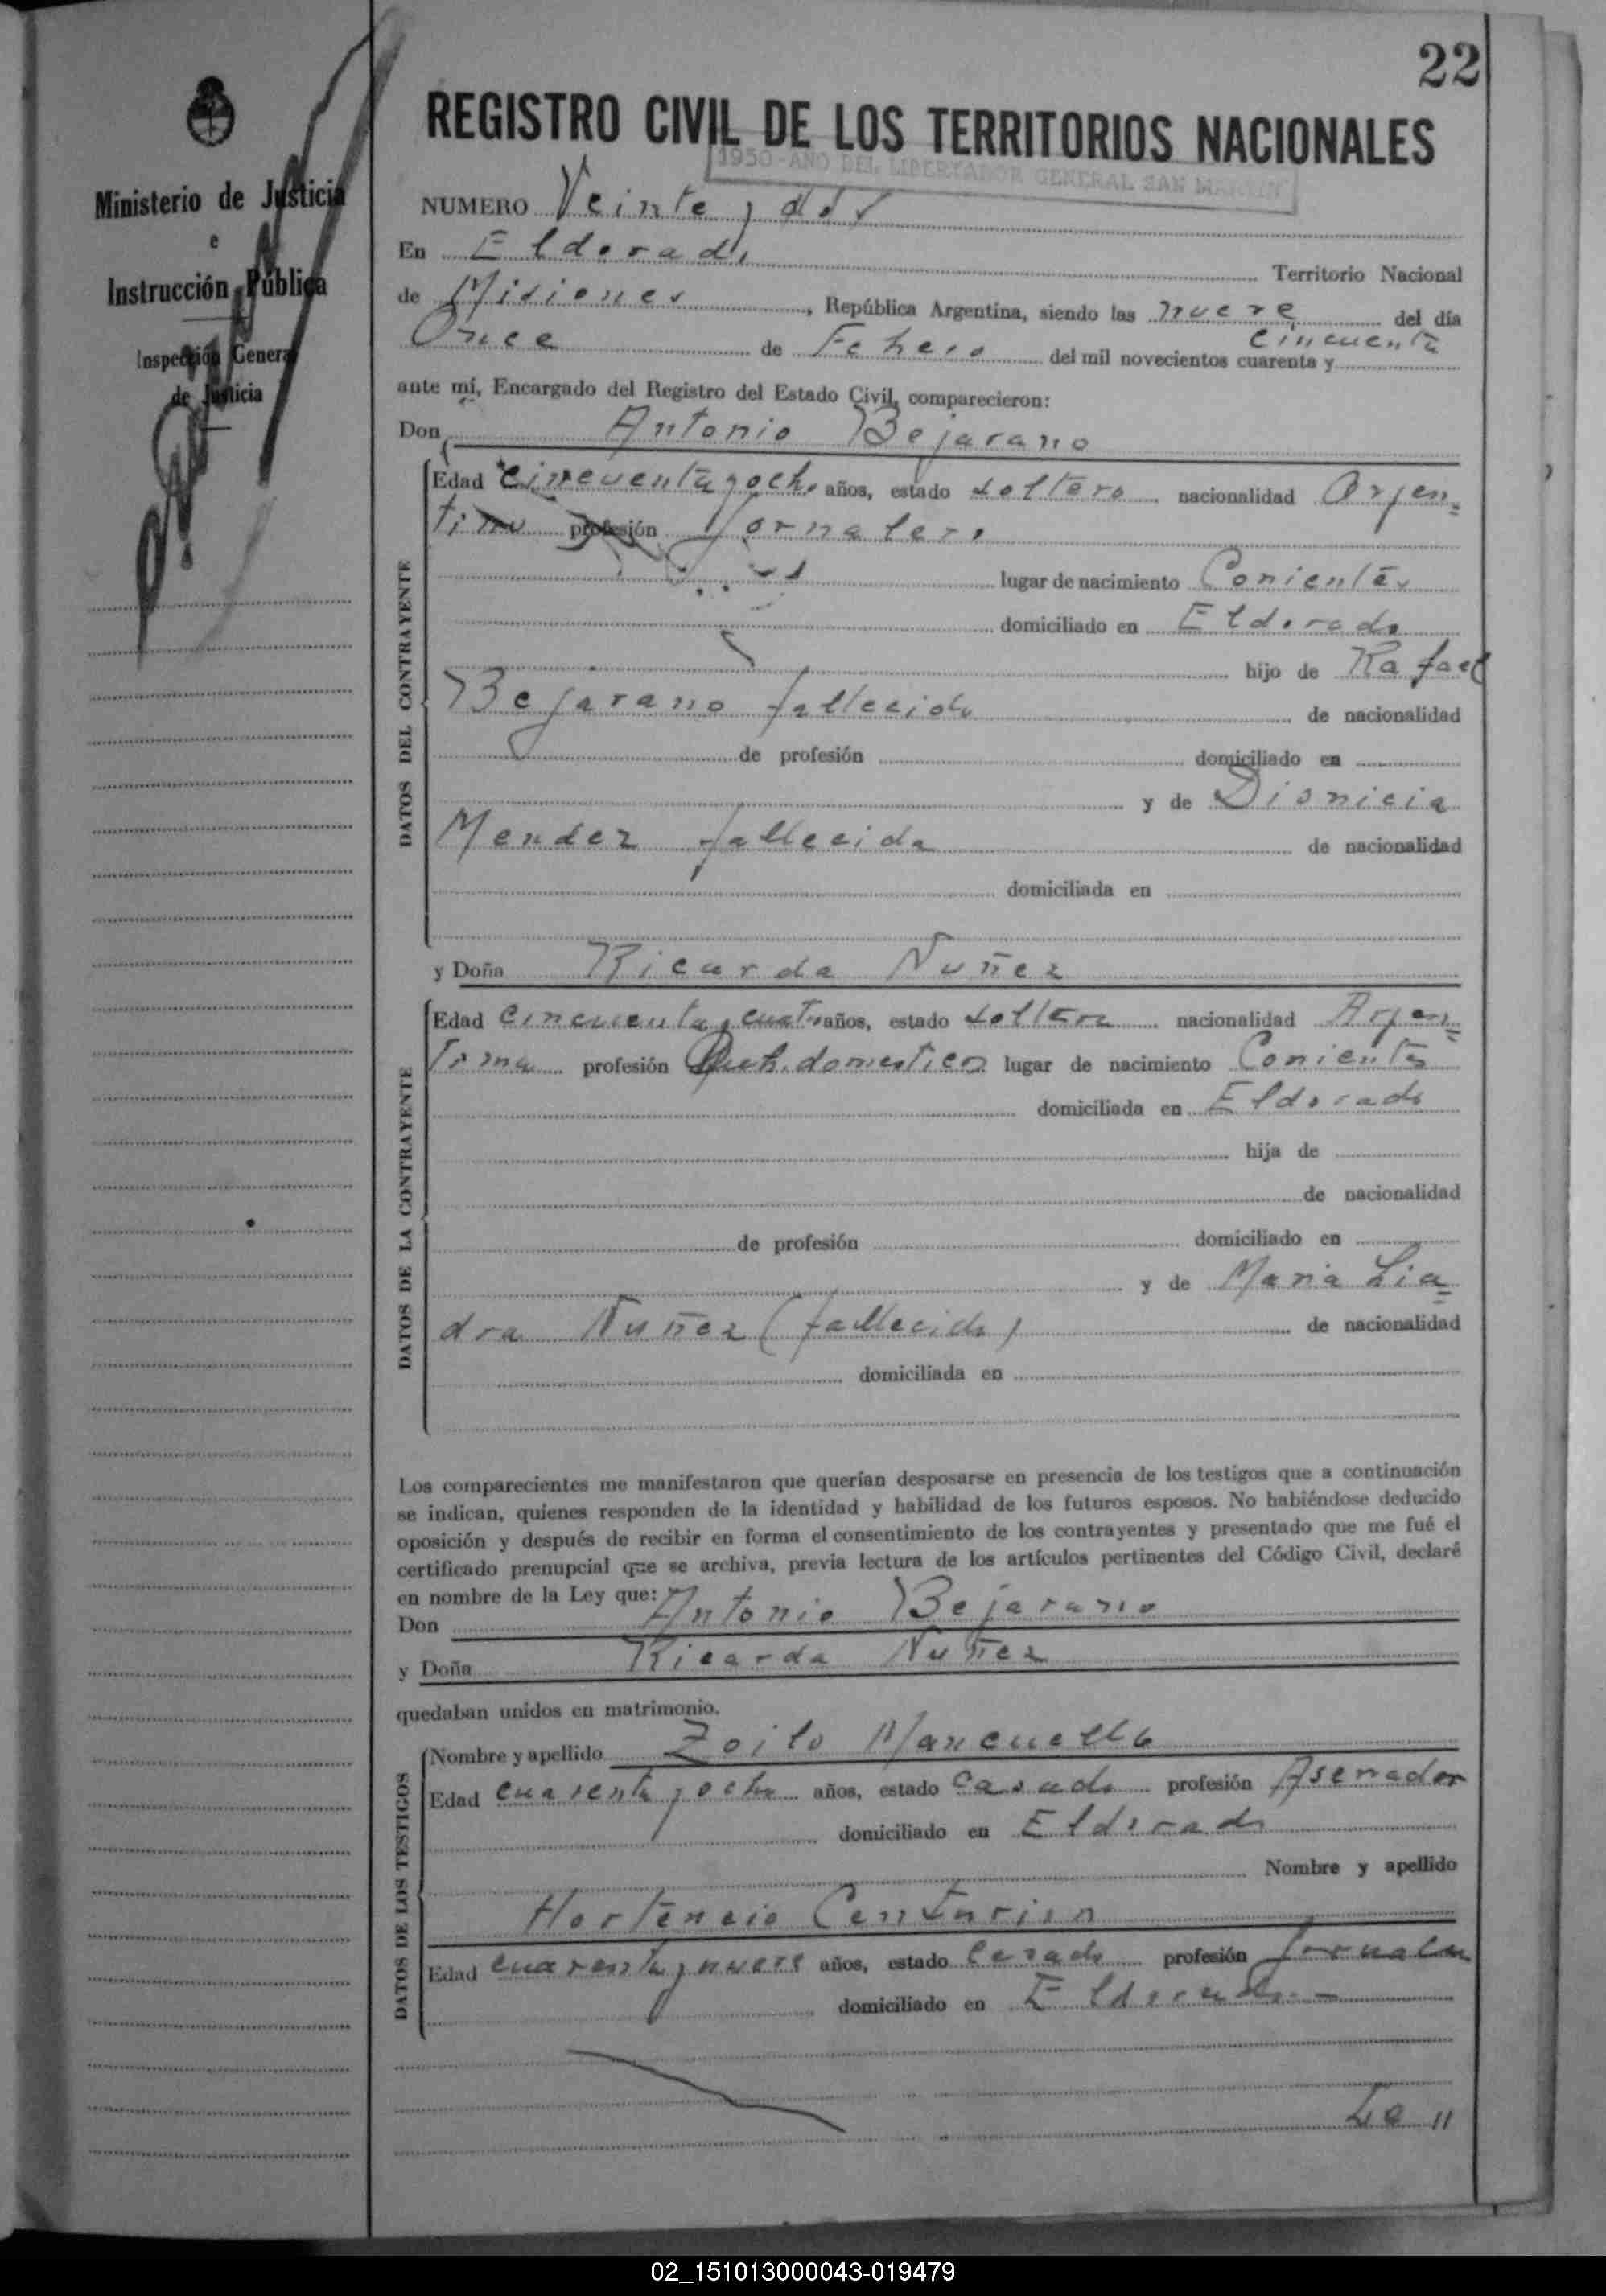 22
REGISTRO CIVIL DE LOS TERRITORIOS NACIONALES
1950 - AÑO DEL LIBERTADOR GENERAL SAN MARTIN
Ministerio de Justicia
e
Instrucción Pública
Inspección General
de Justicia
NUMERO Veinte y dos
En Eldorado Territorio Nacional
de Misiones, República Argentina, siendo las nueve del día
Once de Febrero del mil novecientos cuarenta y cincuenta
ante mí, Encargado del Registro del Estado Civil, comparecieron:
Don Antonio Bejarano
DATOS DEL CONTRAYENTE
Edad cincuenta y ocho años, estado soltero nacionalidad Argen=
tino profesión Jornalero
lugar de nacimiento Corrientes
domiciliado en Eldorado
hijo de Rafael
Bejarano fallecido de nacionalidad
de profesión domiciliado en
y de Dionicia
Mendez fallecida de nacionalidad
domiciliada en
y Doña Ricarda Nuñez
DATOS DE LA CONTRAYENTE
Edad cincuenta y cuatro años, estado soltera nacionalidad Argen=
tina profesión Queh. domestico lugar de nacimiento Corrientes
domiciliada en Eldorado
hija de
de nacionalidad
de profesión domiciliado en
y de Maria Lia=
dra Nuñez (fallecida) de nacionalidad
domiciliada en
Los comparecientes me manifestaron que querían desposarse en presencia de los testigos que a continuación
se indican, quienes responden de la identidad y habilidad de los futuros esposos. No habiéndose deducido
oposición y después de recibir en forma el consentimiento de los contrayentes y presentado que me fué el
certificado prenupcial que se archiva, previa lectura de los artículos pertinentes del Código Civil, declaré
en nombre de la Ley que:
Don Antonio Bejarano
y Doña Ricarda Nuñez
quedaban unidos en matrimonio.
DATOS DE LOS TESTIGOS
Nombre y apellido Zoilo Mancuello
Edad cuarenta y ocho años, estado casado profesión Aserrador
domiciliado en Eldorado
Nombre y apellido
Hortencio Centurion
Edad cuarenta y nueve años, estado casado profesión Jornalero
domiciliado en Eldorado.-
Le "
02_151013000043-019479